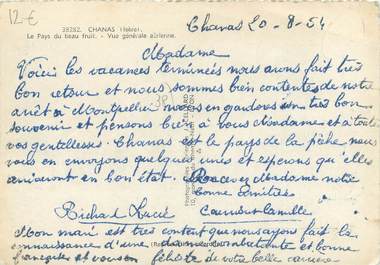 12 €
38282. CHANAS (Isère).
Le Pays du beau fruit. - Vue générale aérienne.
Chanas 20-8-54
Madame
Voici les vacances terminées nous avons fait très
bon retour et nous sommes bien contentes de notre
arrêt à Montpellier nous en gardons un très bon
souvenir et pensons bien à vous Madame et à toute
vos gentellesses. Chanas est le pays de la pêche nous
vous en envoyons quelques unes et esperons qu'elles
arriveront en bon état. Madame notre
bonne
Richard
Mon mari est très content que nous ayons fait la
connaissance d'une dame et bonne
française et vous en félicite de votre belle carrière